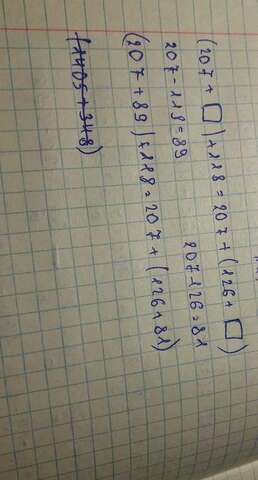 (207 + □) + 118 = 207 + (126 + □)
207 - 118 = 89 207-126 = 81
(207 + 89) + 118 = 207 + (126 + 81)
(1405 + 348)